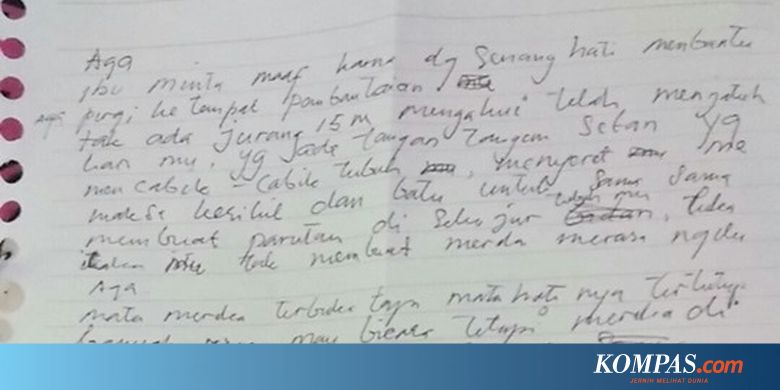 Aga
ibu minta maaf karna dg senang hati membantu
Aga pergi ke tempat pembantaian
tak ada jurang 15 m mengakui telah menjatuh
kan mu, yg jade tangan tangan setan yg
mencabik-cabik tubuh, menyeret me
maksa kerikil dan batu untuk sama sama
membuat parutan di sekujur tubuh mu, luka
tak membuat merda merasa ngilu
Aga
mata merdea terbuka tapi mata hati nya tertutup
mau bicara tetapi merdea di
KOMPAS.com
JERNIH MELIHAT DUNIA